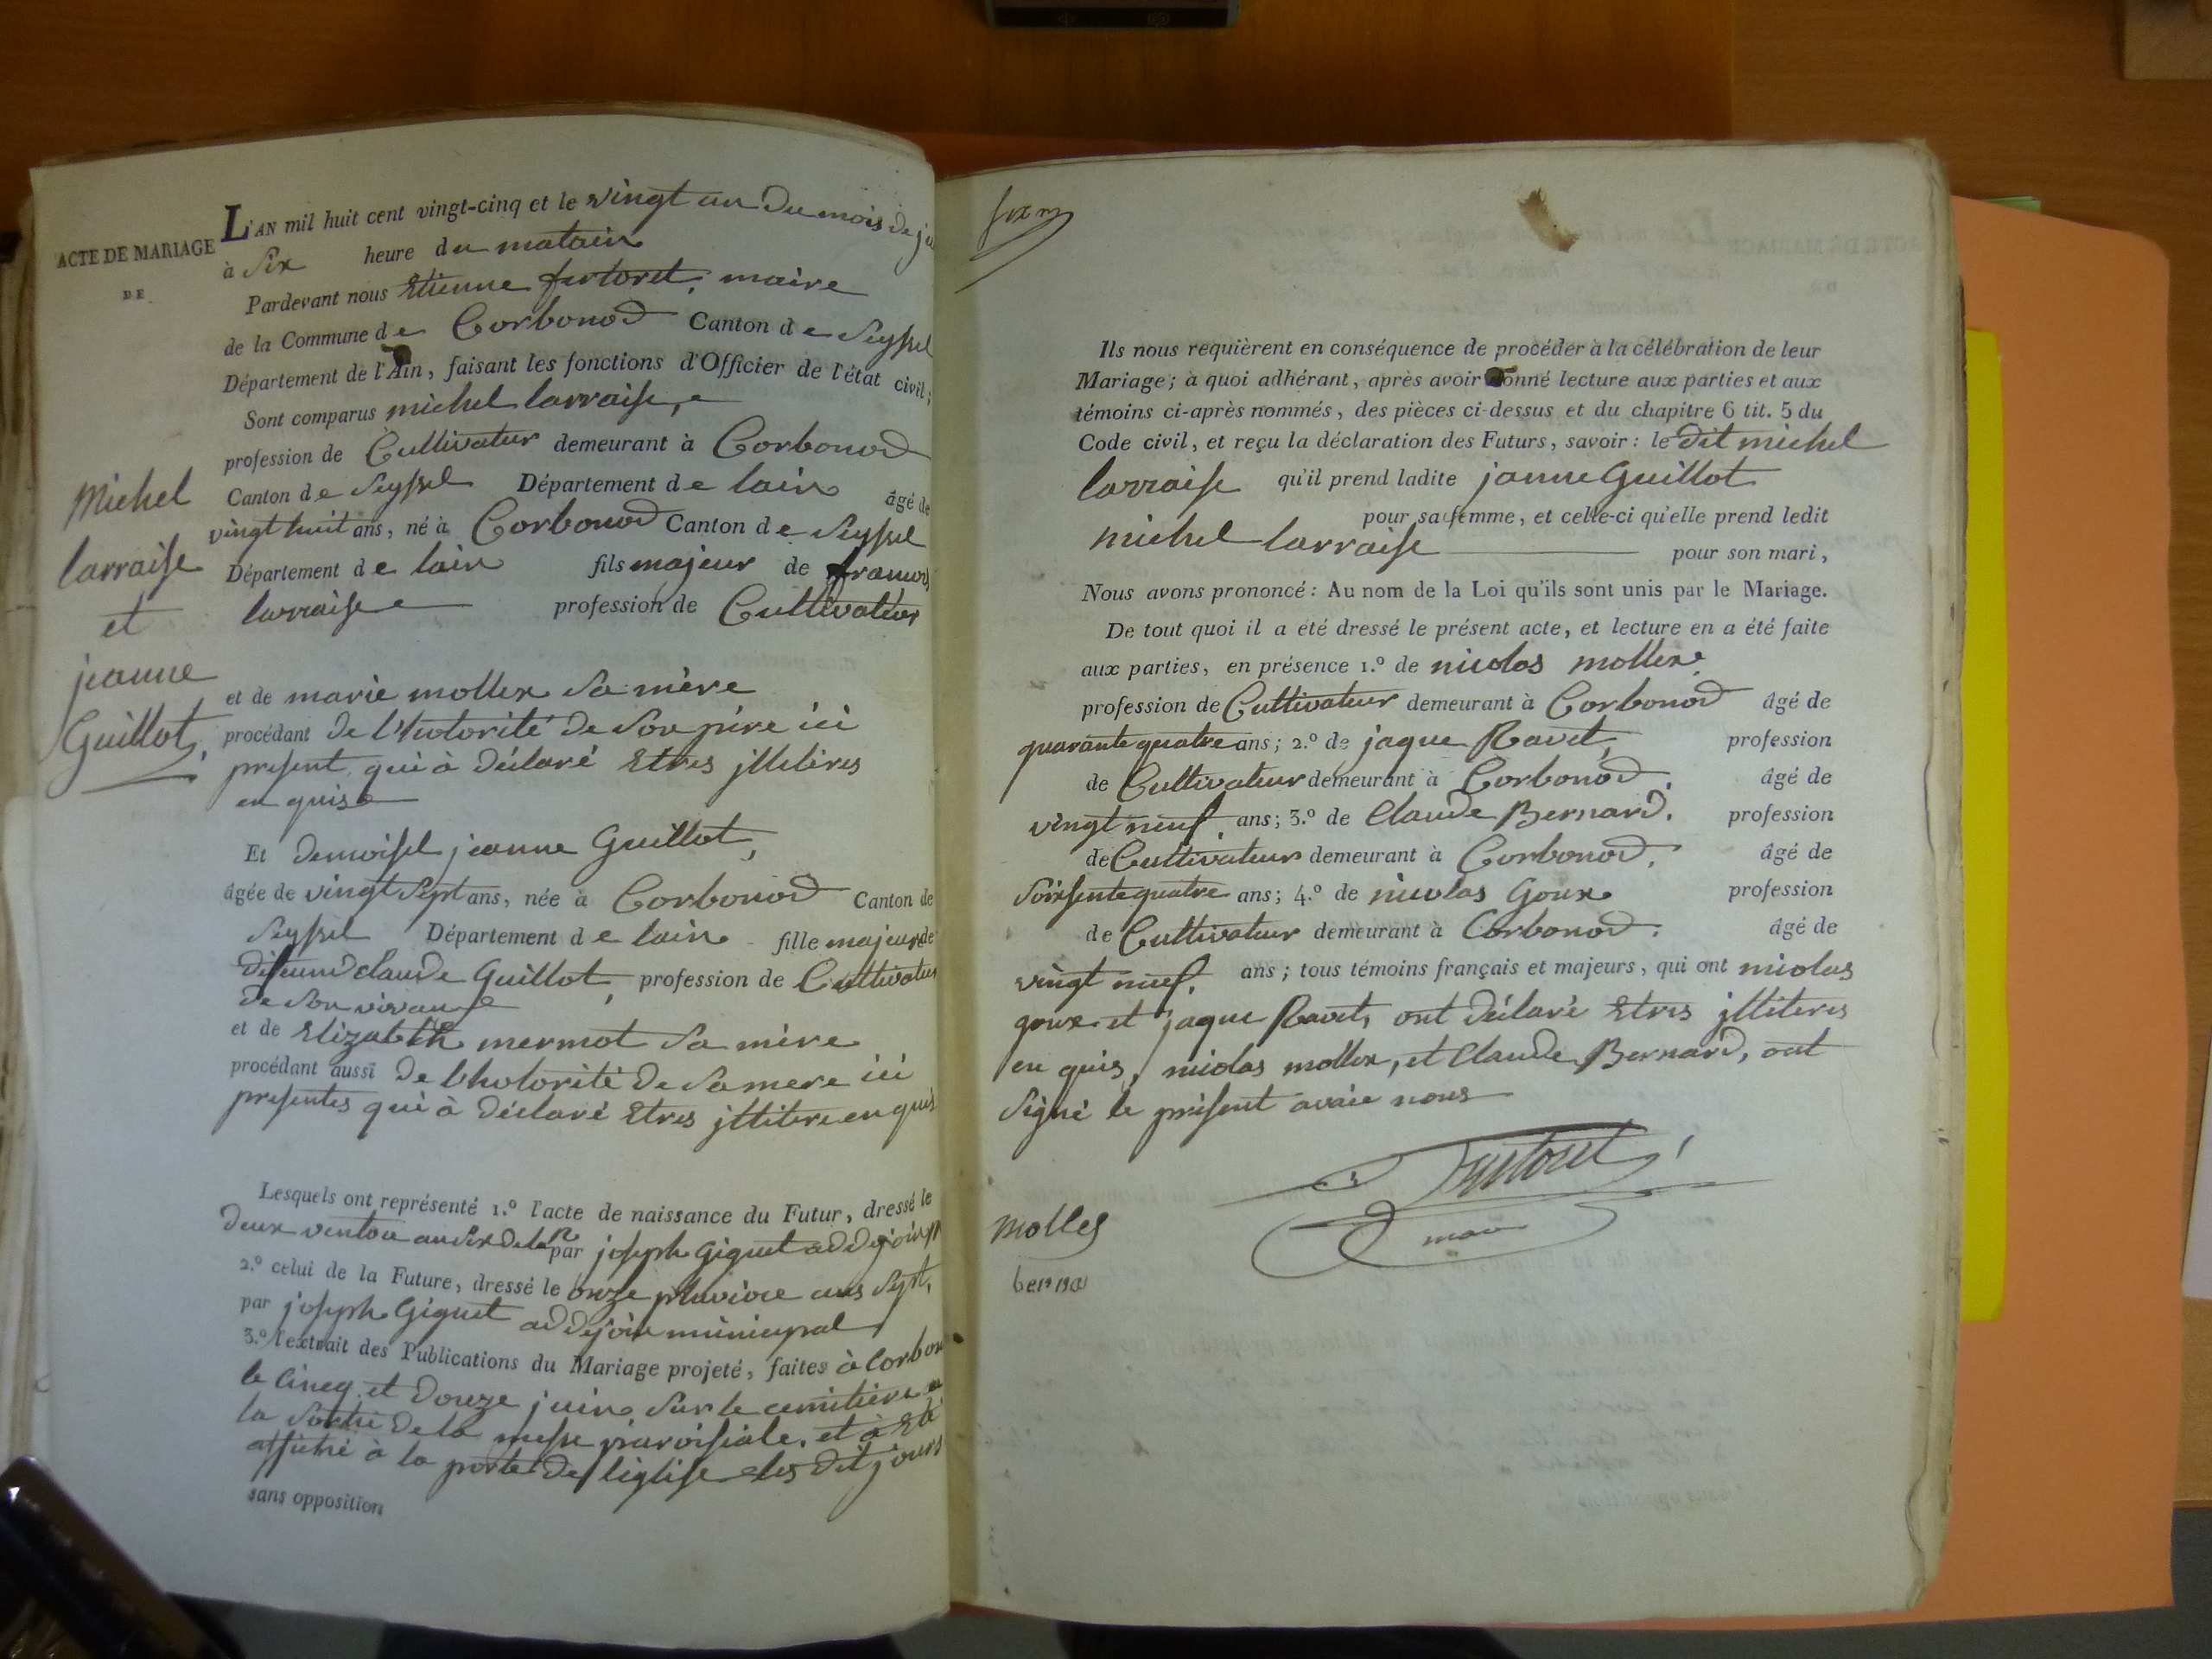 ACTE DE MARIAGE
DE
Michel
larraise
et
jeanne
Guillot,
L'AN mil huit cent vingt-cinq et le vingt un du mois de
à Six heure du matain
Pardevant nous Etienne furtoret, maire
de la Commune de Corbonod Canton de Seyssel
Département de l'Ain, faisant les fonctions d'Officier de l'état civil;
Sont comparus michel larraise,
profession de Cultivatur demeurant à Corbonod
Canton de Seyssel Département de lain âgé de
vingt huit ans, né à Corbonod Canton de Seyssel
Département de lain fils majeur de françois
larraise profession de Cultivateur
et de marie mollex Sa mère
procédant de l'hotorité de Son père ici
present qui à déclaré Etres jlletéres
en quis
Et demoisel jeanne Guillot,
âgée de vingt Sept ans, née à Corbonod Canton de
Seyssel Département de lain fille majeur de
défeund claude Guillot, profession de Cultivateur
de Son vivant
et de Elizabeth mermot Sa mère
procédant aussi de lhotorité de Sa mere ici
presentes qui à déclaré Etres jllitere en quis
Lesquels ont représenté 1.º l'acte de naissance du Futur, dressé le
deux ventou an Six de la R par joseph Giguet
2.º celui de la Future, dressé le onze pluvioe ans Sept,
par joseph Giguet addejoin municipal
3.º l'extrait des Publications du Mariage projeté, faites à Corbon
le Cineq et Douze juin Sur le cemitiere
la Sortie de la messe paroisiale, et à Eté
affiché à la porte de léglise les dit jours
sans opposition
Ils nous requièrent en conséquence de procéder à la célébration de leur
Mariage; à quoi adhérant, après avoir donné lecture aux parties et aux
témoins ci-après nommés, des pièces ci-dessus et du chapitre 6 tit. 5 du
Code civil, et reçu la déclaration des Futurs, savoir: le dit michel
larraise qu'il prend ladite janne Guillot
pour sa femme, et celle-ci qu'elle prend ledit
michel larraise pour son mari,
Nous avons prononcé: Au nom de la Loi qu'ils sont unis par le Mariage.
De tout quoi il a été dressé le présent acte, et lecture en a été faite
aux parties, en présence 1.º de nicolas mollex,
profession de Cultivateur demeurant à Corbonod âgé de
quarante quatre ans; 2.º de jaque Ravet, profession
de Cultivateur demeurant à Corbonod. âgé de
vingt neuf, ans; 3.º de Claude Bernard. profession
de Cultivateur demeurant à Corbonod. âgé de
Soixsente quatre ans; 4.º de nicolas Goux profession
de Cultivateur demeurant à Corbonod. âgé de
vingt neuf, ans; tous témoins français et majeurs, qui ont nicolas
goux et jaque Ravet, ont déclaré Etres jlliteres
en quis, nicolas mollex, et Claude Bernard, ont
Signé le présent avaie nous
furtoret
maire
Molleg
bernar